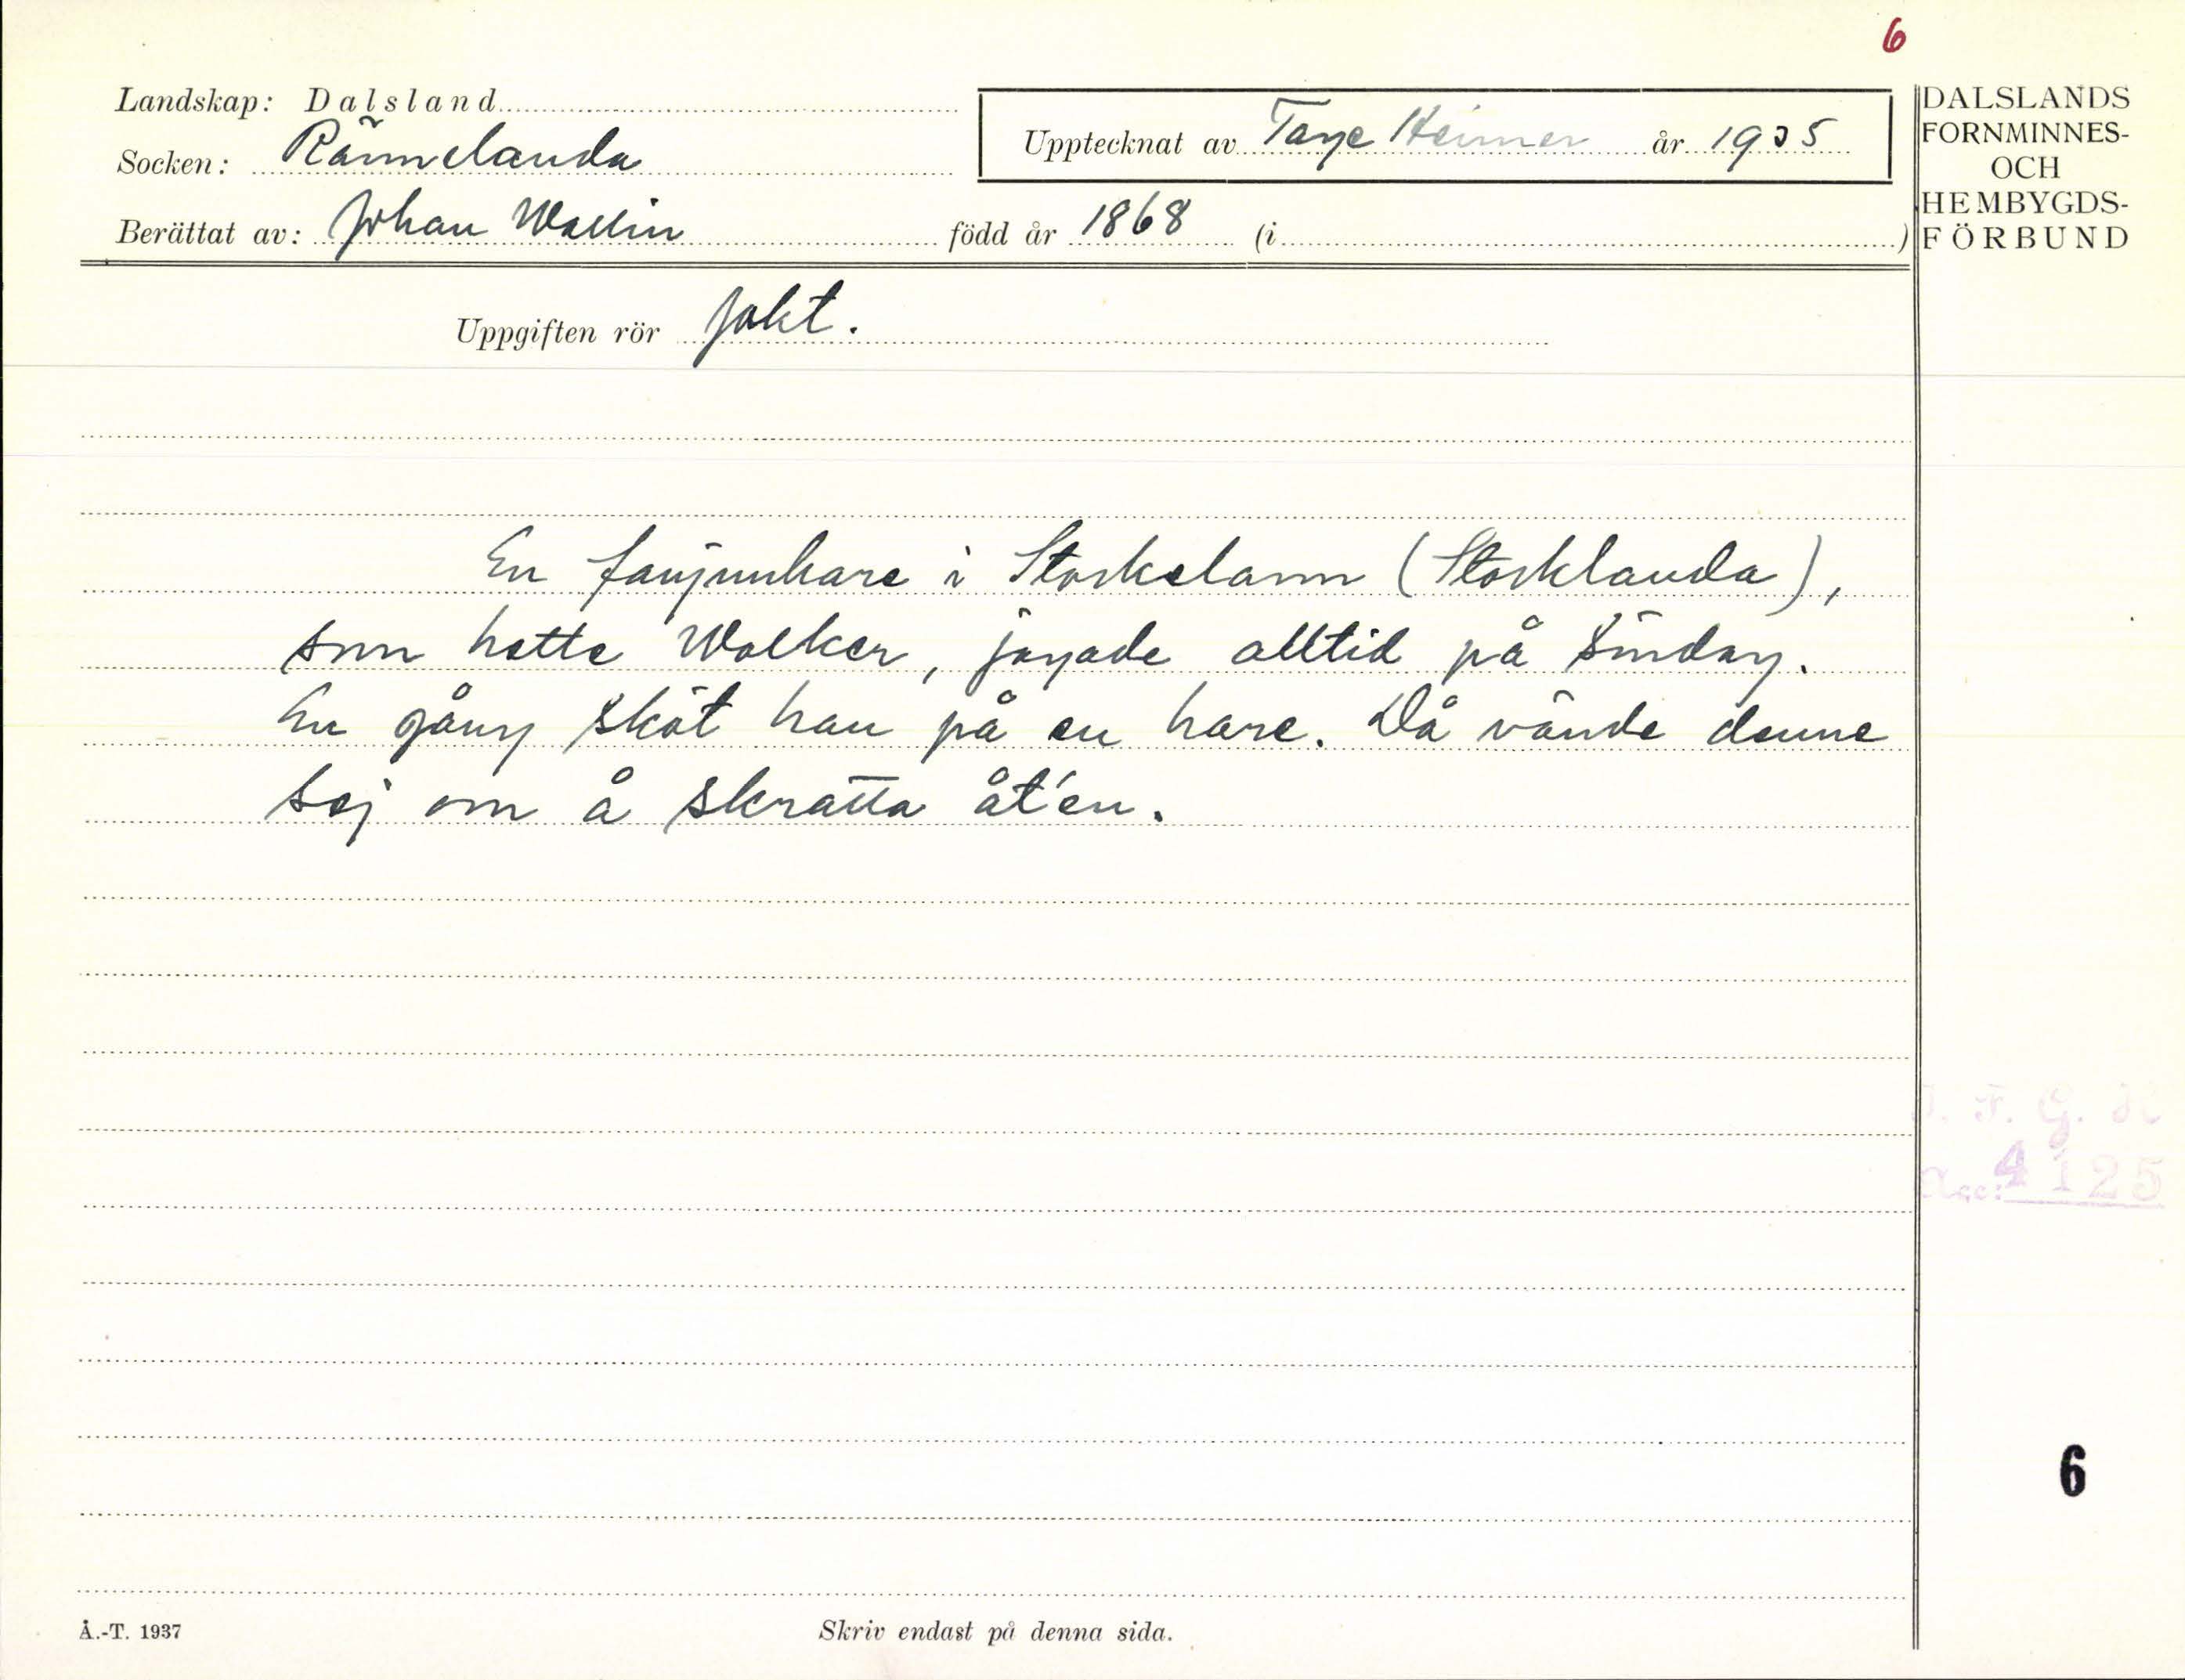 6
Landskap: Dalsland
Socken: Rännelanda
Upptecknat av Tage Heimer år 1935
Berättat av: Johan Wallin född år 1868 (i )
DALSLANDS
FORNMINNES-
OCH
HEMBYGDS-
FÖRBUND
Uppgiften rör Jakt.
En fanjunkare i Storkelann (Storklanda),
som hette Wolker, jagade alltid på söndag.
En gång sköt han på en hare. Då vände denne
sej om å skratta åt'en.
I. F. G. H
Acc: 4125
6
Å.-T. 1937
Skriv endast på denna sida.